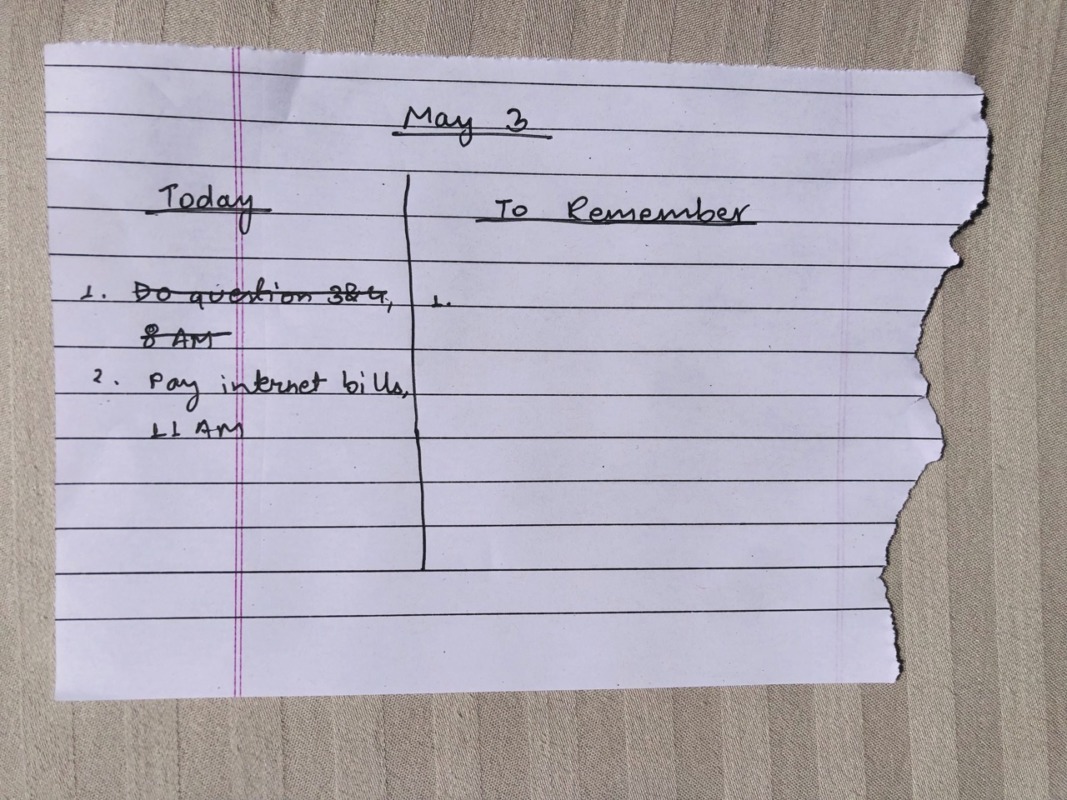 May 3
Today
1. Do question 3&4,
8 AM
2. Pay internet bills,
11 AM
To Remember
1.